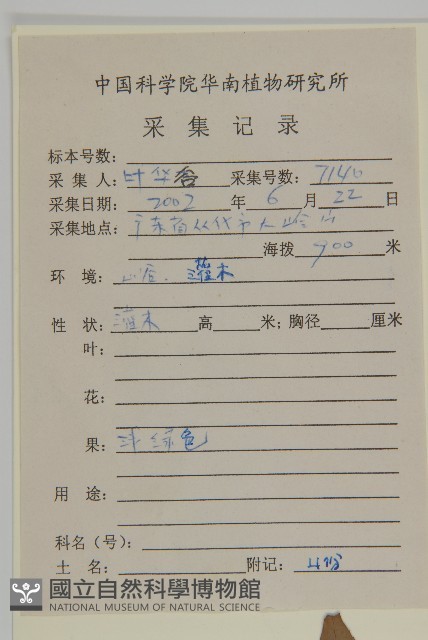 中国科学院华南植物研究所
采集记录
标本号数：
采集人：叶华谷 采集号数：7140
采集日期：2002年6月22日
采集地点：广东省从化市大岭山
海拨900米
环境：山谷．灌木
性状：灌木 高 米；胸径 厘米
叶：
花：
果：绿色
用途：
科名（号）：
土名： 附记：4份
國立自然科學博物館
NATIONAL MUSEUM OF NATURAL SCIENCE